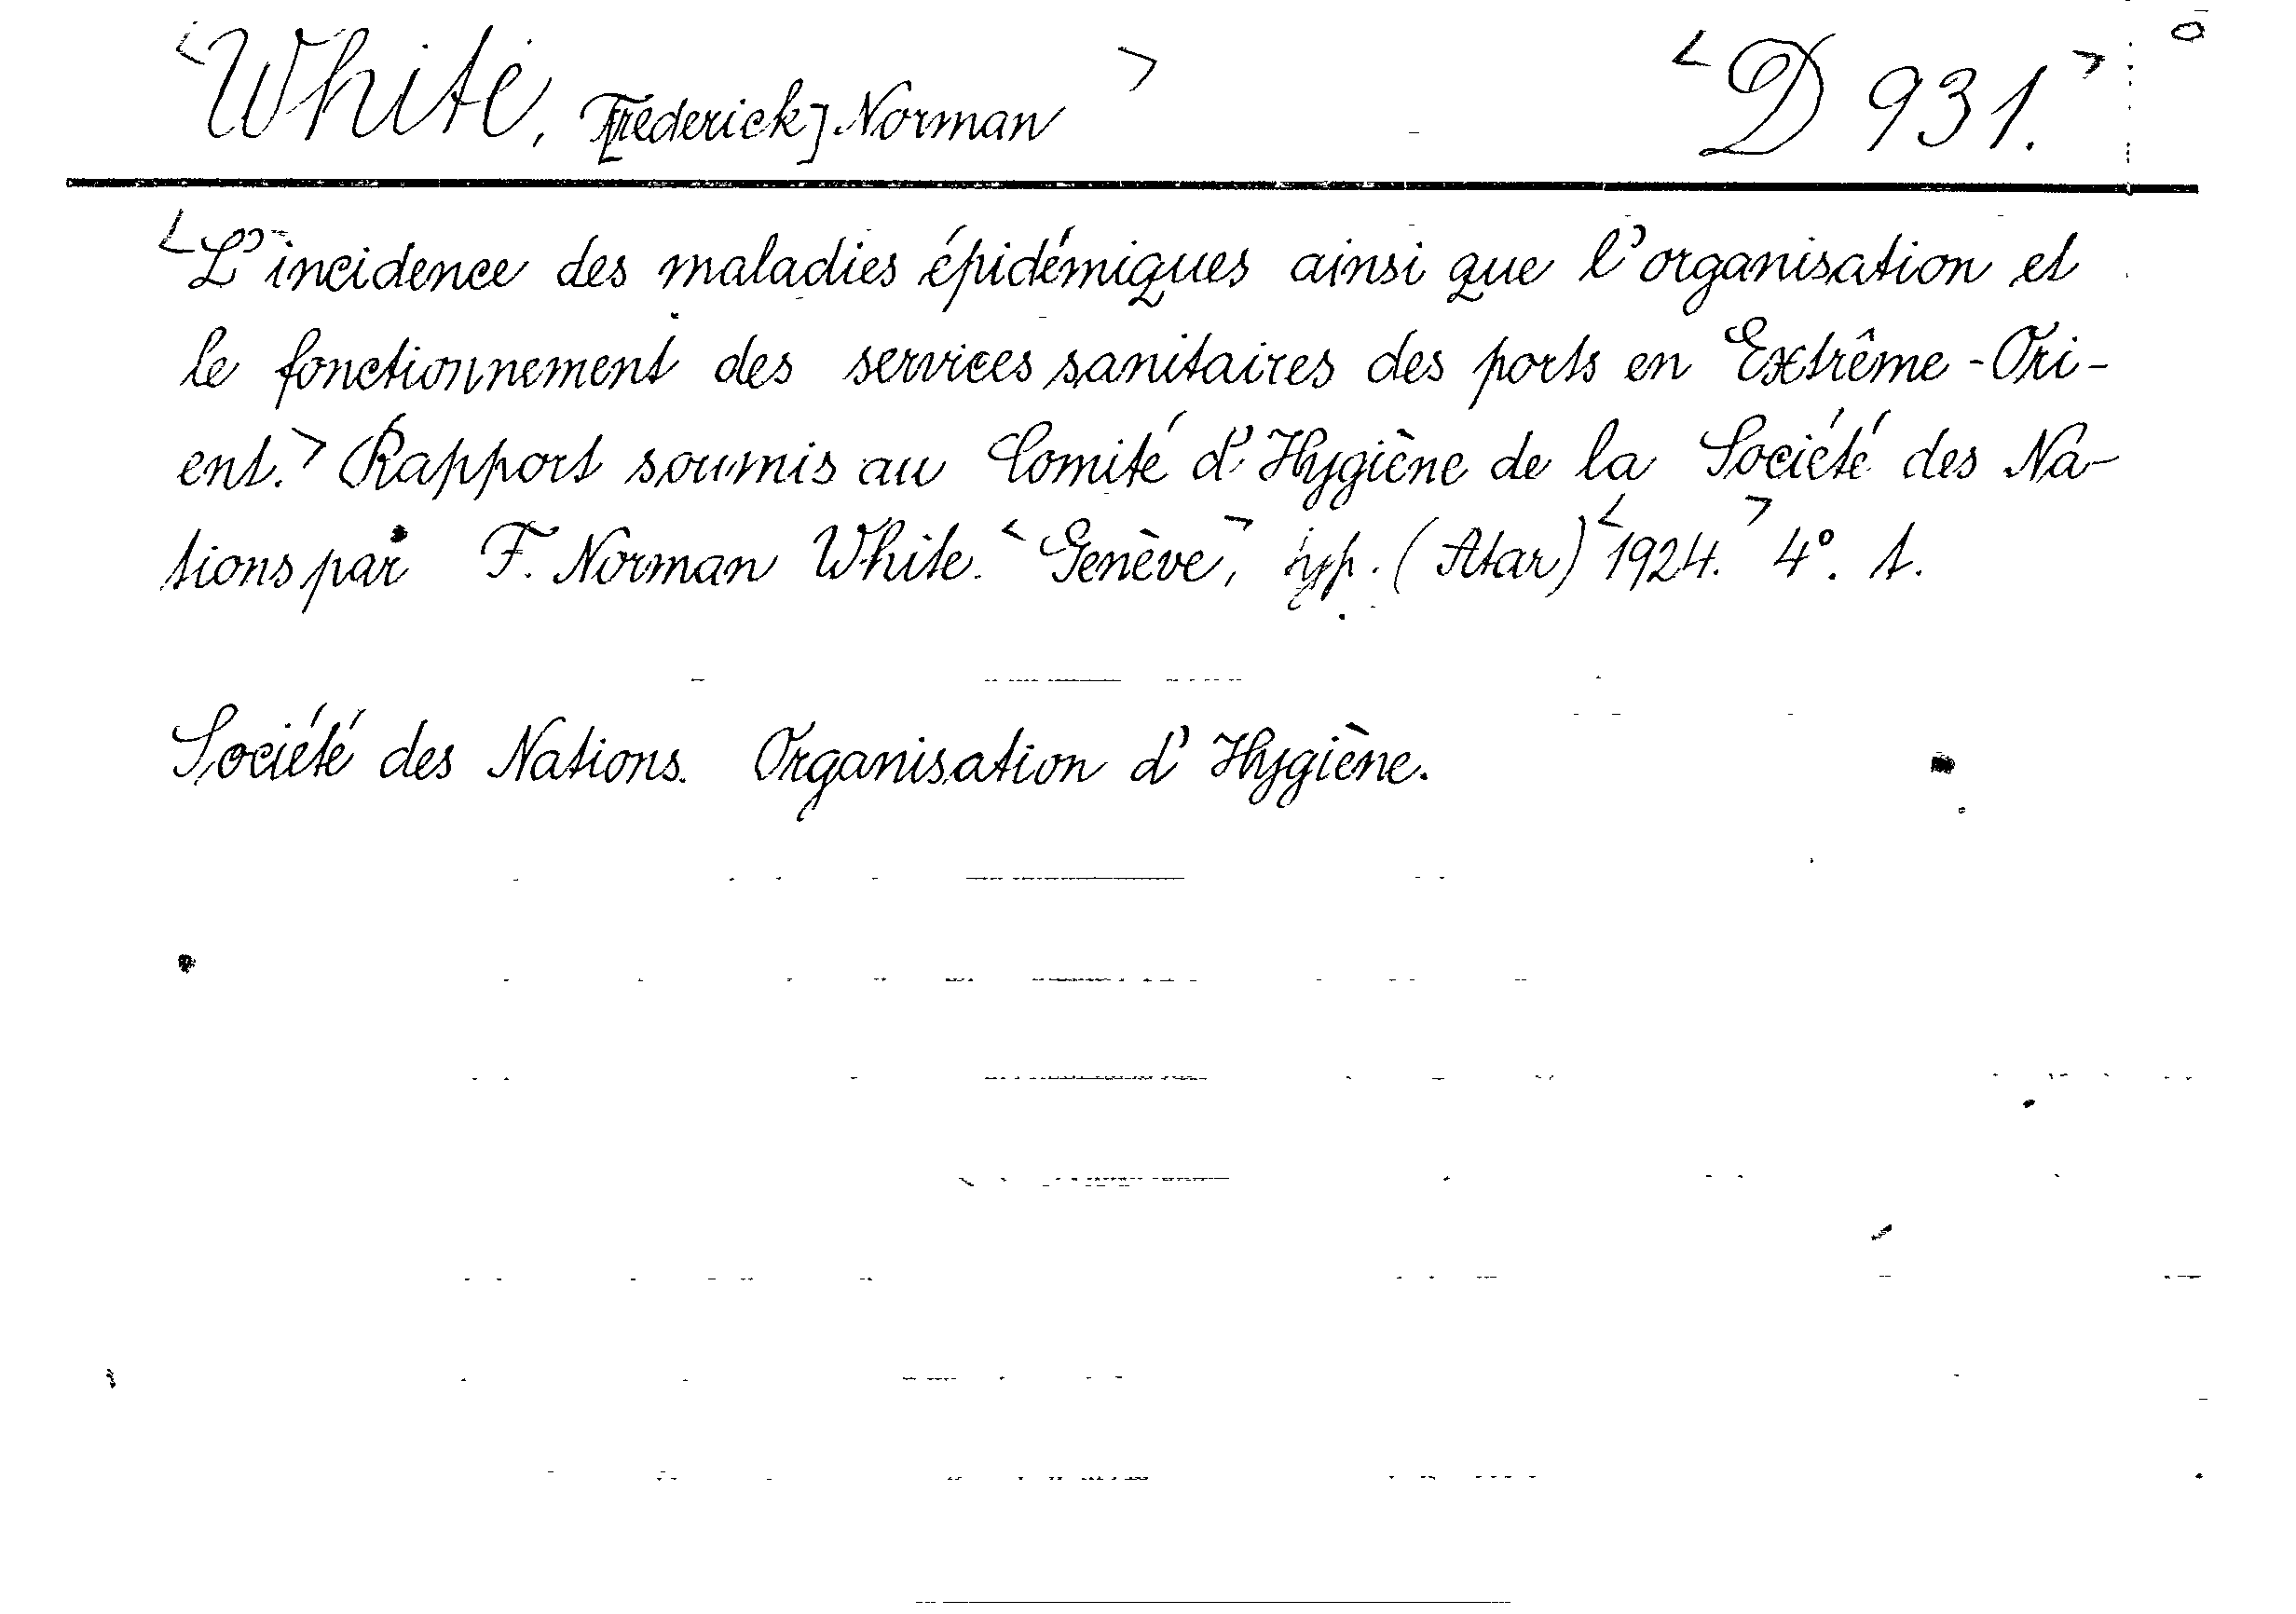 <White, F[rederick] Norman> <D 931.>
<L'incidence des maladies épidémiques ainsi que l'organisation et
le fonctionnement des services sanitaires des ports en Extrême-Ori-
ent.> Rapport soumis au Comité d'Hygiène de la Société des Na-
tions par F. Norman White. <Genève>, typ. (Atar) <1924.> 4°. 1.
Société des Nations. Organisation d'Hygiène.